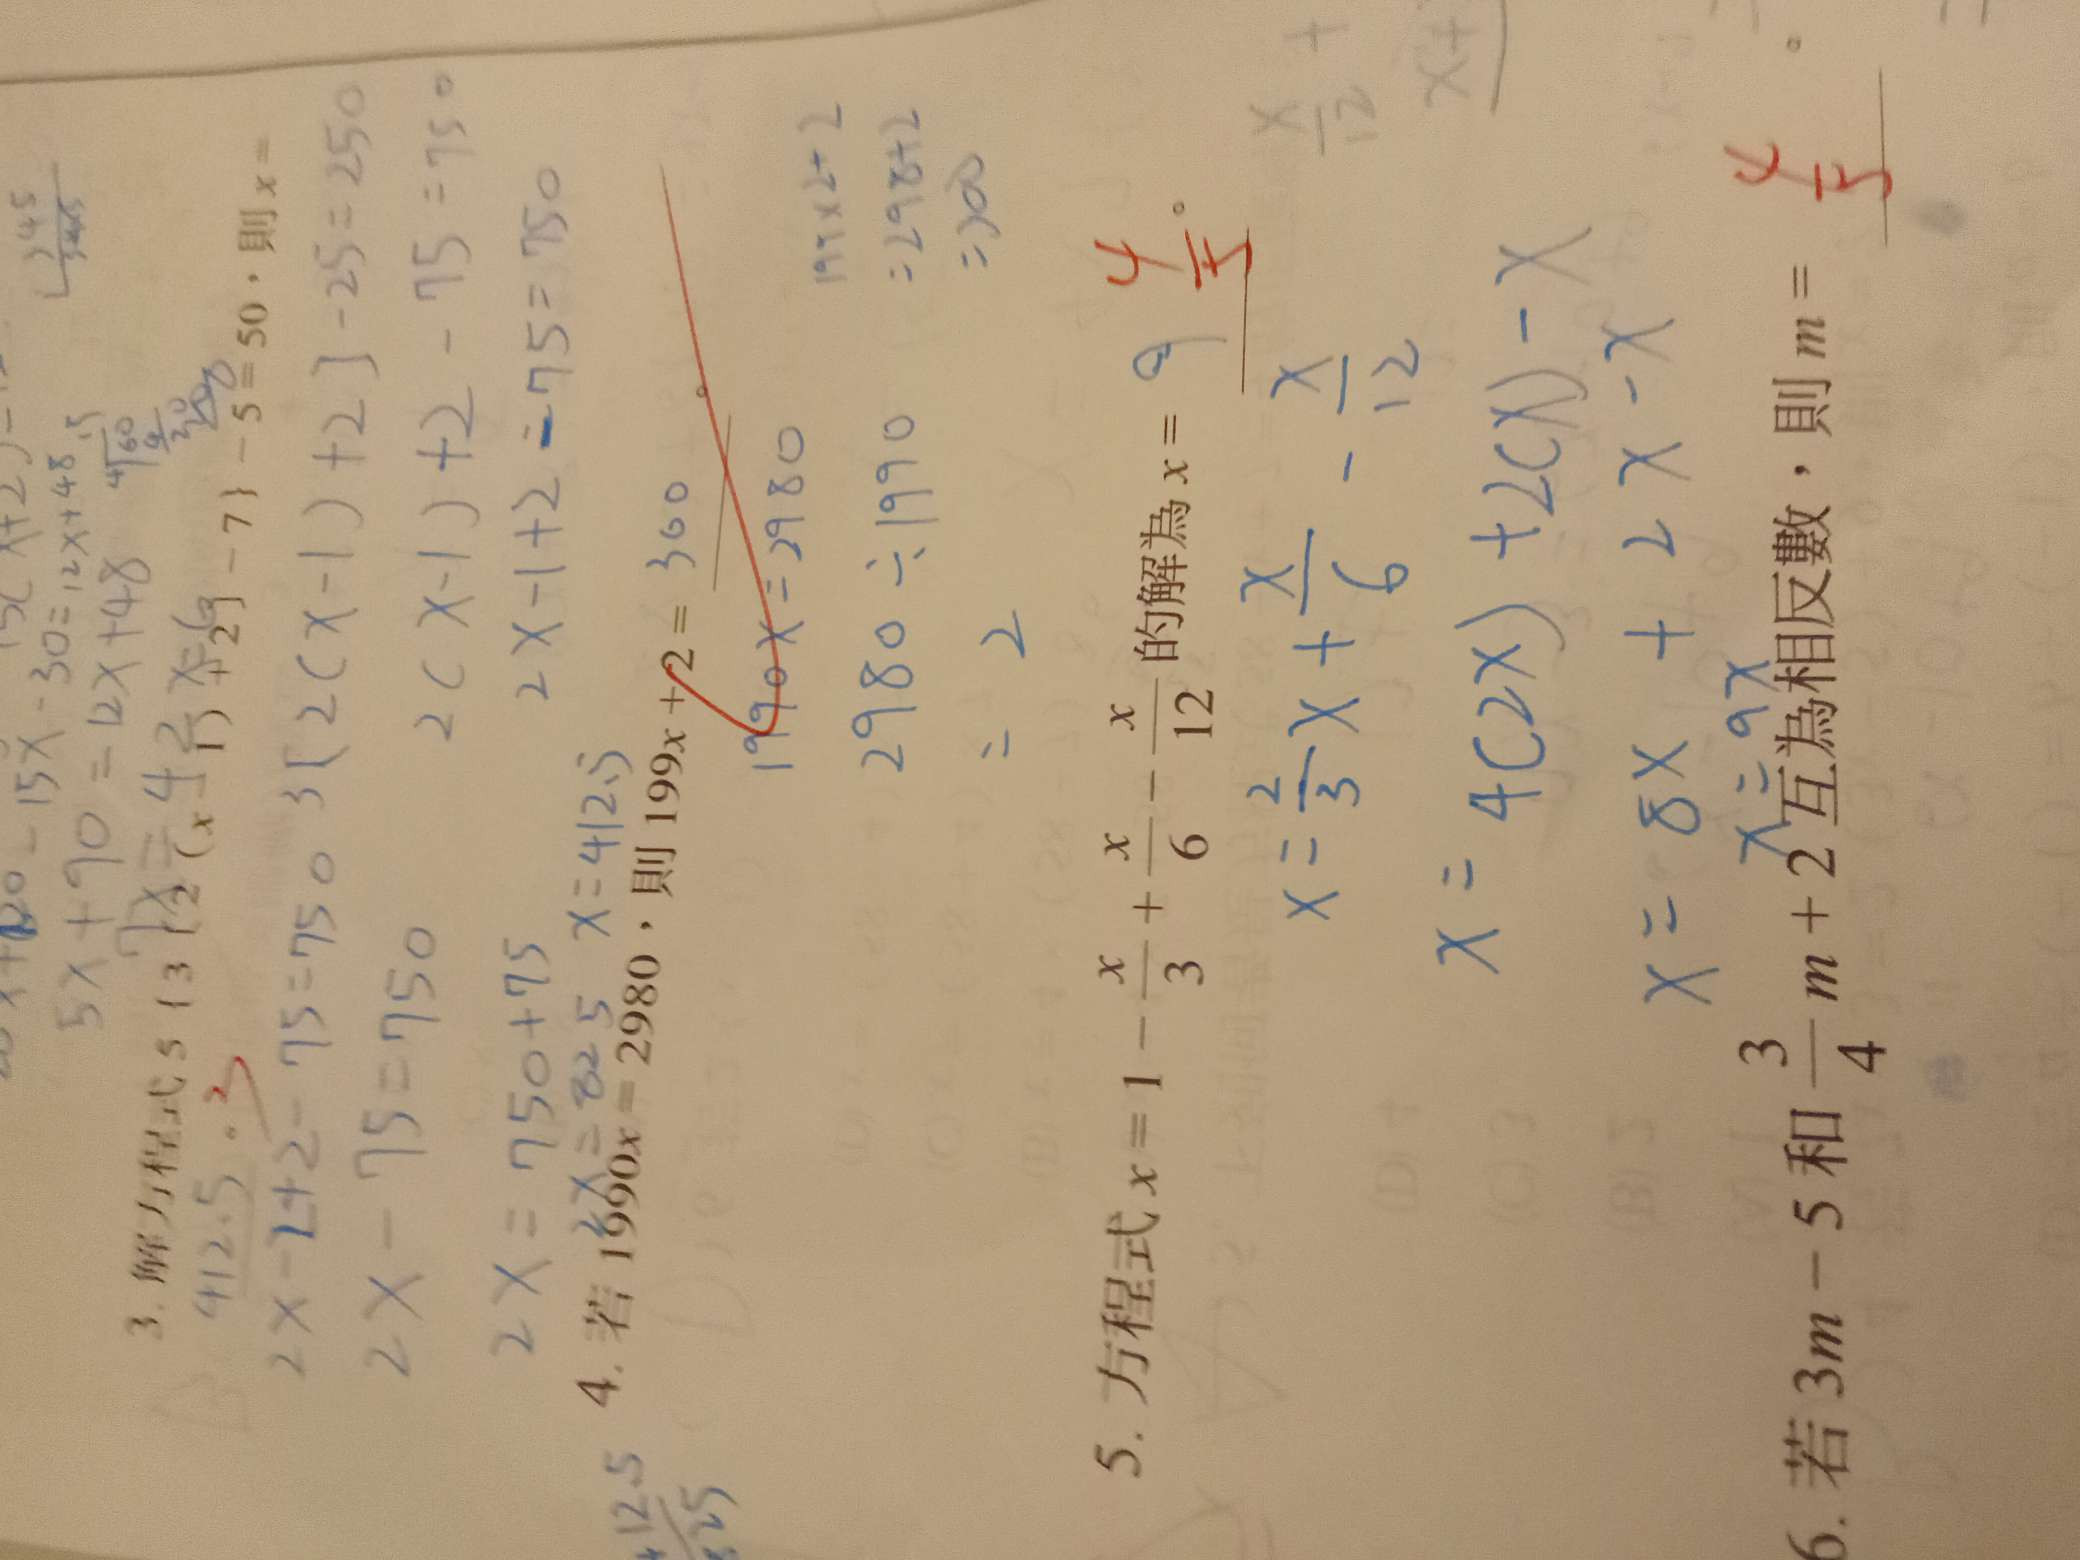 5x+90=12x+48
3. 解方程式 5{3[2(x-1)+2]-7}-5=50，則x=
412.5。
2
2x-1+2-75=750
3[2(x-1)+2]-25=250
2x-75=750
2(x-1)+2-75=750
2x=750+75
2x-1+2-75=750
2x=825
x=412.5
412.5
825
4. 若1990x=2980，則199x+2=300。
1990x=2980
2980÷1990
=2
199×2+2
=298+2
=300
5. 方程式x=1-x/3+x/6-x/12的解為x=9。
4/5
x=2/3x+x/6-x/12
x=4(2x)+2(x)-x
x=8x+2x-x
x=9x
x/12+
6. 若3m-5和3/4m+2互為相反數，則m=4/5。